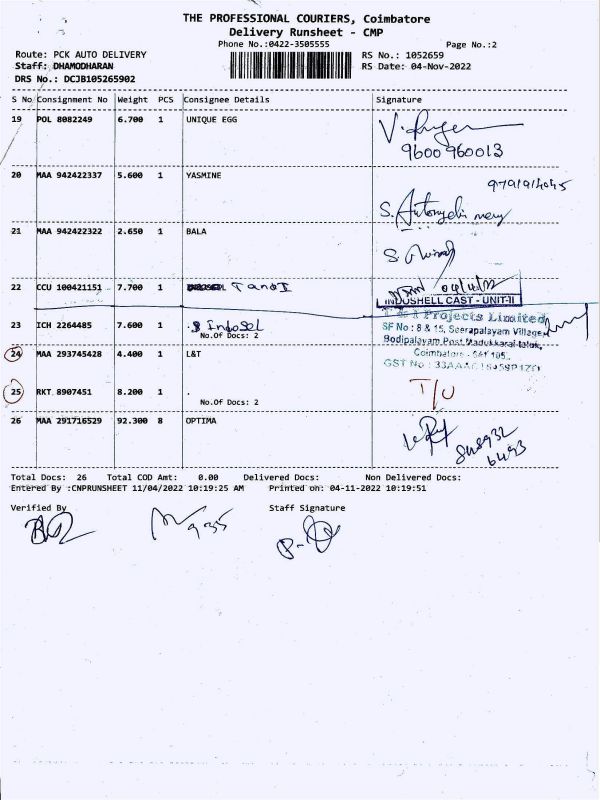 THE PROFESSIONAL COURIERS, Coimbatore
Delivery Runsheet - CMP
Phone No.:0422-3505555 Page No.:2
Route: PCK AUTO DELIVERY RS No.: 1052659
Staff: DHAMODHARAN RS Date: 04-Nov-2022
DRS No.: DCJB105265902
S No Consignment No Weight PCS Consignee Details Signature
19 POL 8082249 6.700 1 UNIQUE EGG
9600 960013
20 MAA 942422337 5.600 1 YASMINE
S.
21 MAA 942422322 2.650 1 BALA
S.
22 CCU 100421151 7.700 1 TandI
INDOSHELL CAST - UNIT-II
T & I Projects Limited
23 ICH 2264485 7.600 1 Indosel
No.Of Docs: 2
SF No : 8 & 15, Seerapalayam Village,
Bodipalayam Post, Madukkarai taluk,
24 MAA 293745428 4.400 1 L&T
Coimbatore - 641 105.
GST No : 33AAA
25 RKT 8907451 8.200 1 .
T/U
No.Of Docs: 2
26 MAA 291716529 92.300 8 OPTIMA
Total Docs: 26 Total COD Amt: 0.00 Delivered Docs: Non Delivered Docs:
Entered By :CNPRUNSHEET 11/04/2022 10:19:25 AM Printed on: 04-11-2022 10:19:51
Verified By Staff Signature
935